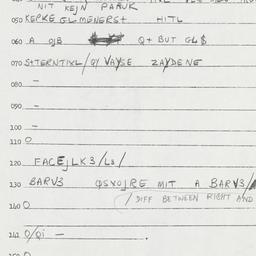 NIT KEJN PARUK
050 KEPKE GLMENERS+ HITL
060 A OJB Q+ BUT GL$
070 S+TERNTIXL/QY VAYSE ZAYDENE
080 —
090 —
100 —
110 O
120 FACEJLK3/L3/
130 BARV3 QSVOJRE MIT A BARV3/
140 O / DIFF BETWEEN RIGHT AND
141 O/Qi —